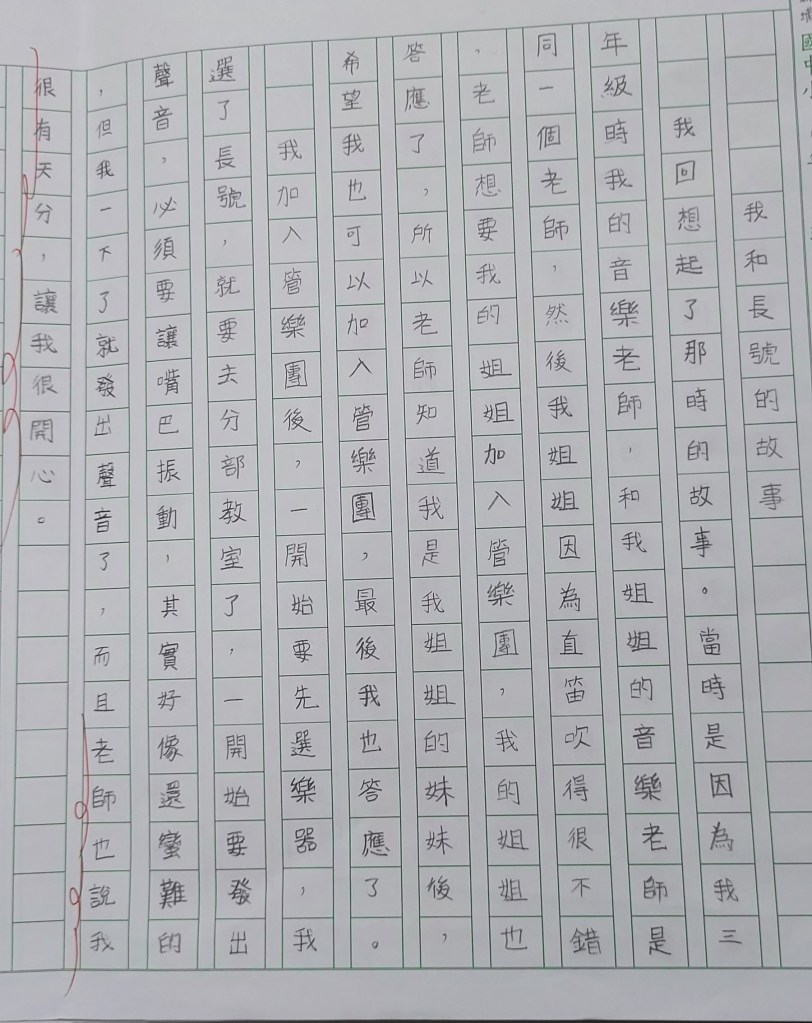 我和長號的故事
我回想起了那時的故事。當時是因為我三
年級時我的音樂老師，和我姐姐的音樂老師是
同一個老師，然後我姐姐因為直笛吹得很不錯
，老師想要我的姐姐加入管樂團，我的姐姐也
答應了，所以老師知道我是我姐姐的妹妹後，
希望我也可以加入管樂團，最後我也答應了。
我加入管樂團後，一開始要先選樂器，我
選了長號，就要去分部教室了，一開始要發出
聲音，必須要讓嘴巴振動，其實好像還蠻難的
，但我一下了就發出聲音了，而且老師也說我
很有天分，讓我很開心。
國中小